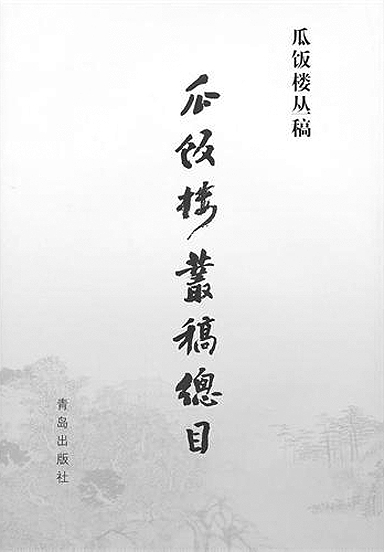 瓜饭楼丛稿
瓜飯樓叢稿總目
青岛出版社